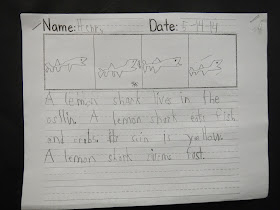 Name: Henry Date: 5-14-14
A lemon shark livs in the
A lemon shark eats fish
and crabs. is yellow.
A lemon shark fast.